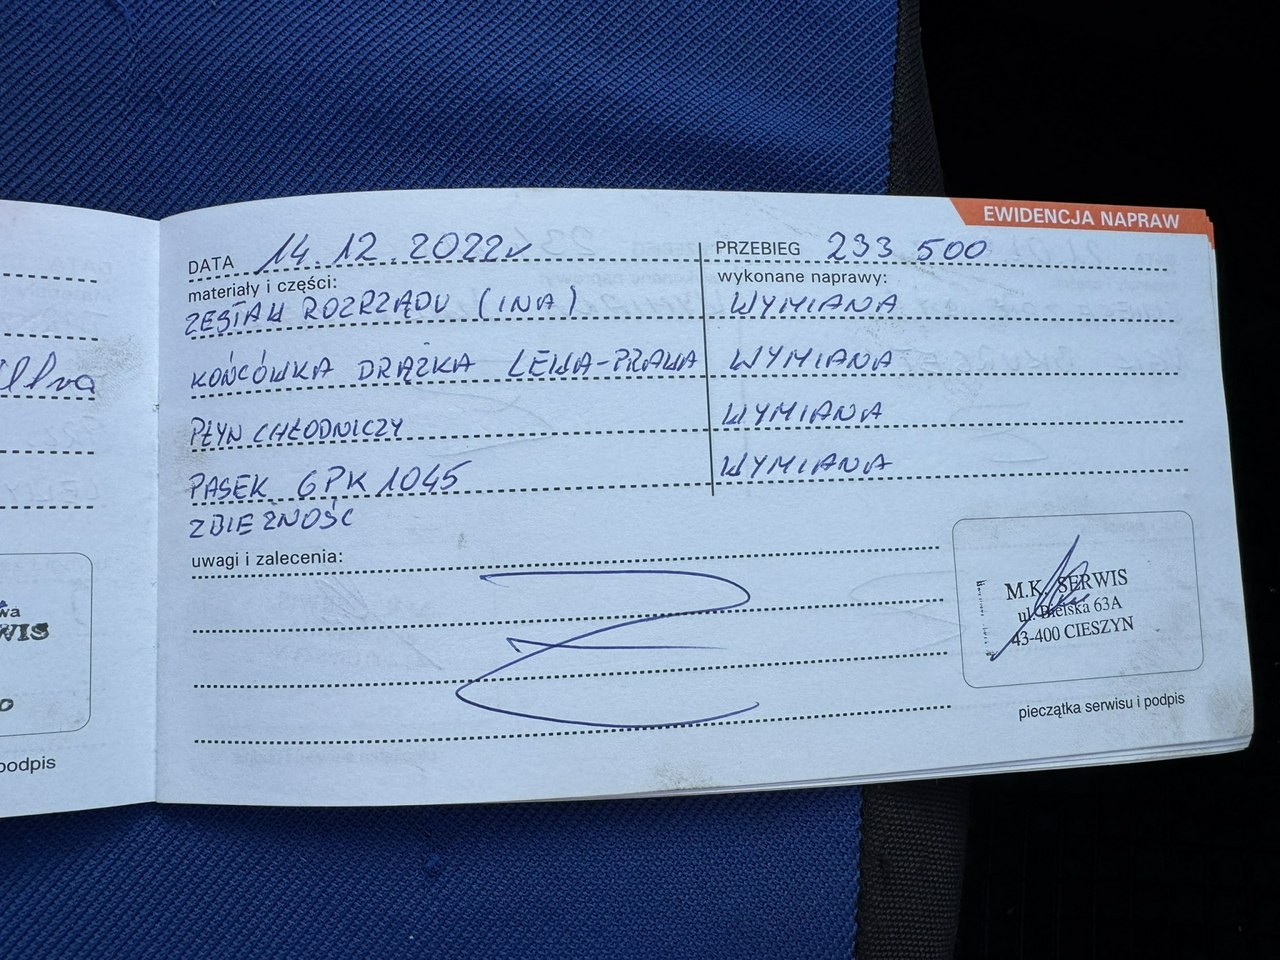 EWIDENCJA NAPRAW
DATA 14.12.2022r PRZEBIEG 233 500
materiały i części: wykonane naprawy:
ZESTAW ROZRZĄDU (INA) WYMIANA
KOŃCÓWKA DRĄŻKA LEWA-PRAWA WYMIANA
PŁYN CHŁODNICZY WYMIANA
PASEK 6PK 1045 WYMIANA
ZBIEŻNOŚĆ
uwagi i zalecenia:
M.K. SERWIS
ul. Bielska 63A
43-400 CIESZYN
pieczątka serwisu i podpis
wa
WIS
podpis